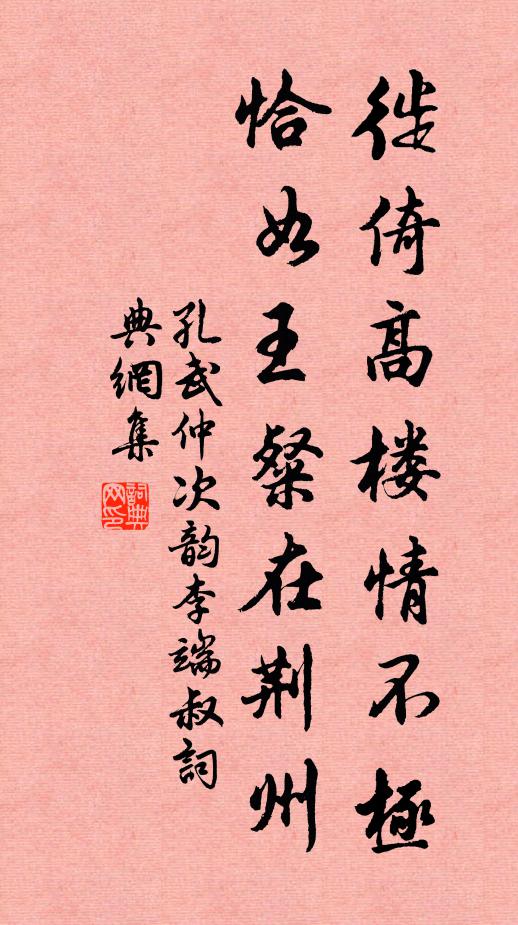 徙倚高楼情不極
恰如王粲在荆州
孔武仲次韵李端叔詞
典網集
詞典网印